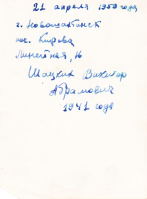 21 апреля 1959 года
г. Новошахтинск
пос. Кирова
16
Шацкий Виктор
Абрамович
1941 года